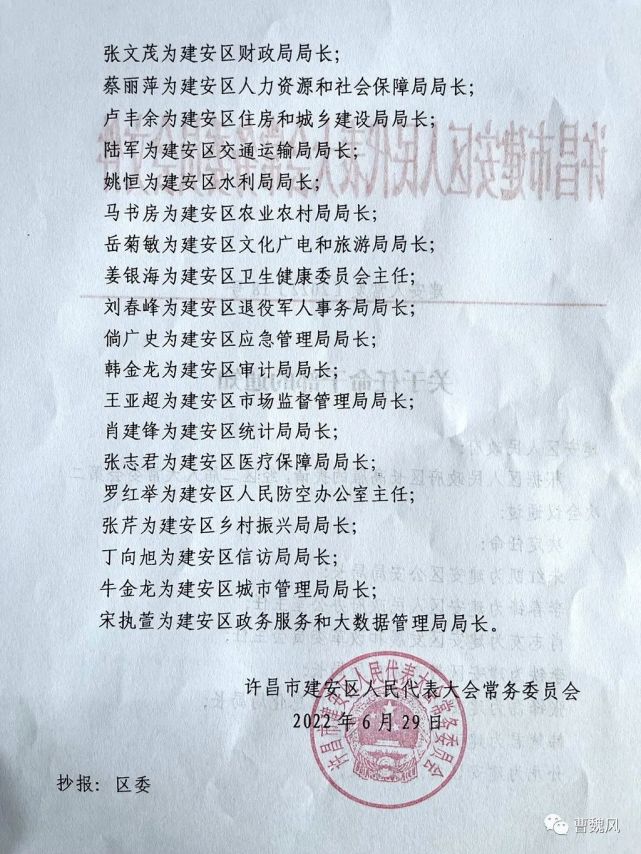 张文茂为建安区财政局局长；
蔡丽萍为建安区人力资源和社会保障局局长；
卢丰余为建安区住房和城乡建设局局长；
陆军为建安区交通运输局局长；
姚恒为建安区水利局局长；
马书房为建安区农业农村局局长；
岳菊敏为建安区文化广电和旅游局局长；
姜银海为建安区卫生健康委员会主任；
刘春峰为建安区退役军人事务局局长；
倘广史为建安区应急管理局局长；
韩金龙为建安区审计局局长；
王亚超为建安区市场监督管理局局长；
肖建锋为建安区统计局局长；
张志君为建安区医疗保障局局长；
罗红举为建安区人民防空办公室主任；
张芹为建安区乡村振兴局局长；
丁向旭为建安区信访局局长；
牛金龙为建安区城市管理局局长；
宋执萱为建安区政务服务和大数据管理局局长。
许昌市建安区人民代表大会常务委员会
2022年6月29日
许昌市建安区人民代表大会常务委员会
抄报：区委
曹魏风